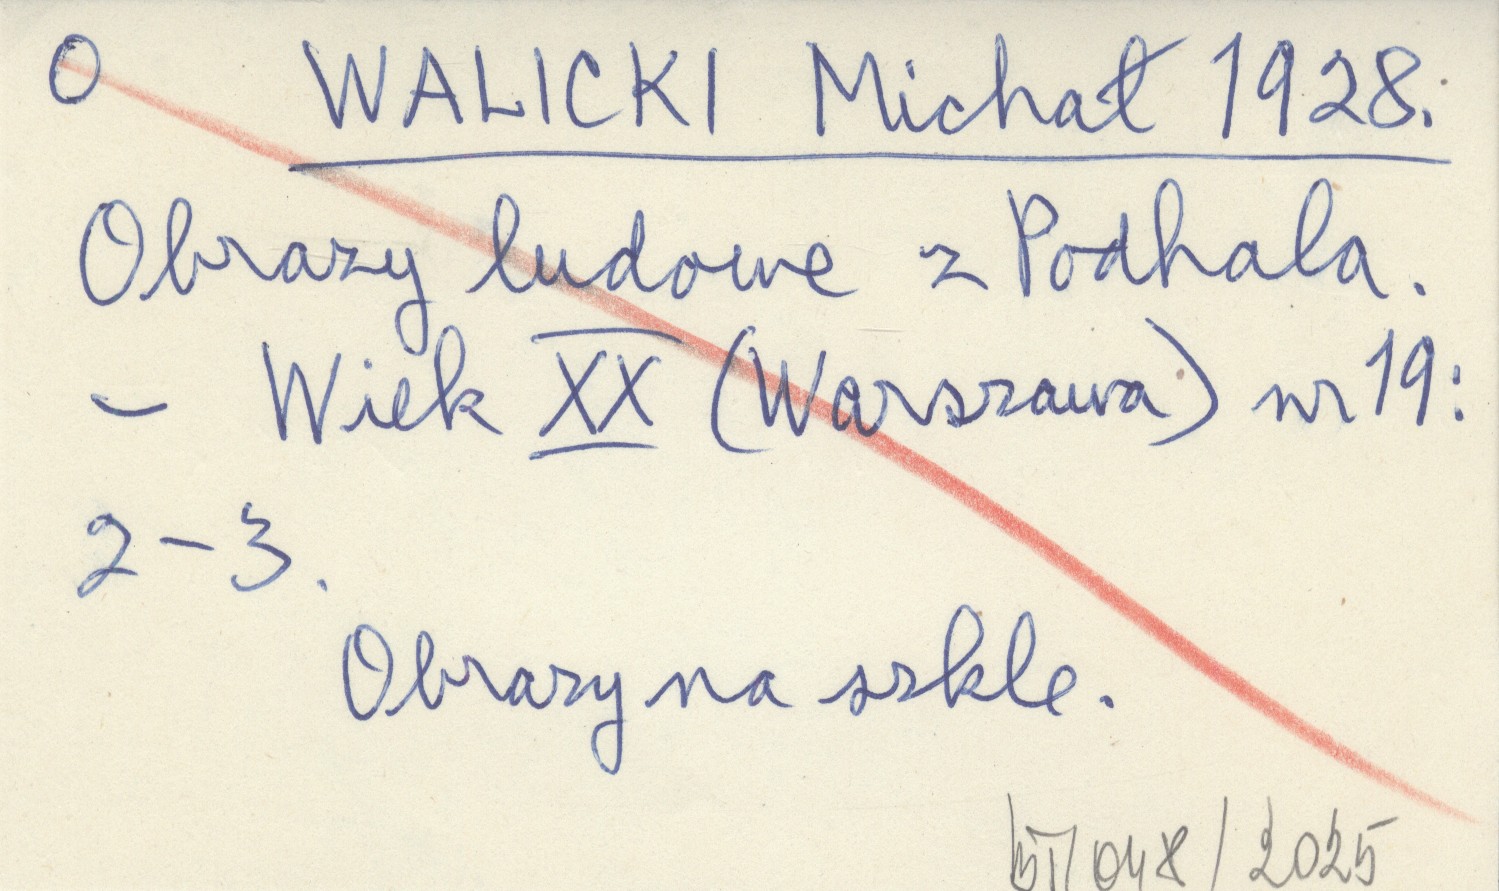 O WALICKI Michał 1928.
Obrazy ludowe z Podhala.
- Wiek XX (Warszawa) nr 19:
2-3.
Obrazy na szkle.
/048/2025